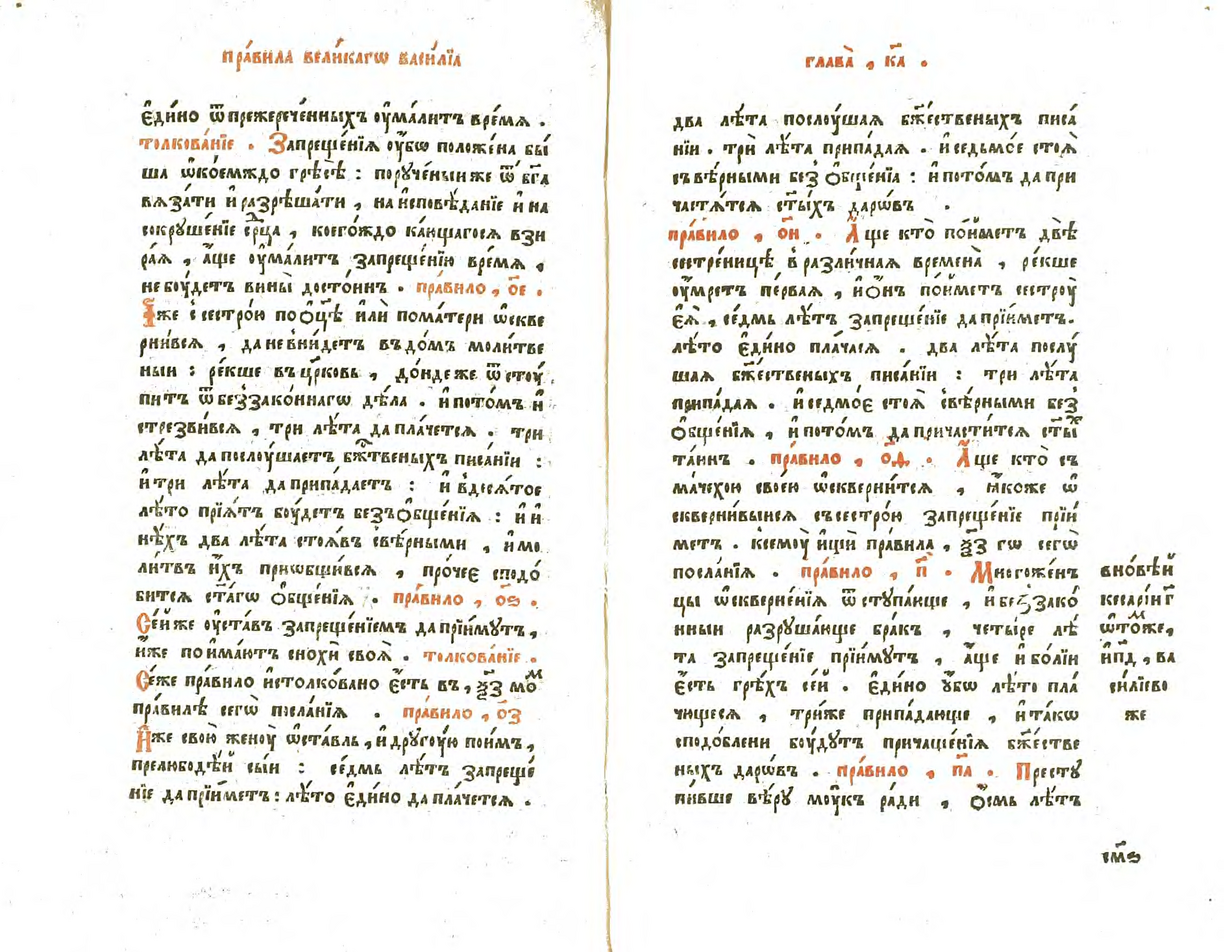 пра́вила вели́кагѡ васи́лїа
є҆ди́но ѿпрежерече́нныхъ оу҆мали́тъ вре́мѧ .
толкова́нїе . Запреще́нїѧ оу҆́бѡ положе́на бы́
ша ѡ҆ко́емждо грѣ́сѣ : пору́ченыи же ѿ бг҃а
вѧза́ти и҆ разрѣша́ти , на и҆сповѣ́данїе и҆ на
сокруше́нїе ср҃ца , коего́ждо ка́ющагосѧ взи
ра́ѧ , а҆́ще оу҆мали́тъ запреще́нїю вре́мѧ ,
не бꙋ́детъ вины̀ досто́инъ . пра́вило , о҃е .
И҆́же с сестро́ю по ѻ҆ц҃ѣ и҆лѝ по ма́тери ѡ҆скве
рни́всѧ , да не вни́детъ въ до́мъ моли́тве
ныи : ре́кше въ цр҃ковь , до́ндеже ѿстꙋ́
питъ ѿ беззако́ннагѡ дѣ́ла . и҆ пото́мъ и҆
стрезви́всѧ , три лѣ́та да пла́четсѧ . три
лѣ́та да послꙋ́шаетъ бж҃твеныхъ писа́нїи :
и҆ три лѣ́та да припа́даетъ : и҆ в десѧ́тое
лѣ́то прїѧ́тъ бꙋ́детъ безъ ѻ҆бще́нїѧ : и҆ и҆
нѣ́хъ два лѣ́та стоѧ́въ с вѣ́рными , и҆ мо
ли́твъ и҆́хъ приѡбщи́всѧ , про́чеє сподо́
битсѧ ст҃а́гѡ ѻ҆бще́нїѧ . пра́вило , о҃ѕ .
Се́й же оу҆ста́въ запреще́нїемъ да прїи́мутъ ,
и҆́же поима́ютъ снохи́ своѧ̀ . толкова́нїе .
Се́же пра́вило и҆столкова́но є҆́сть въ , ѯ҃з мо́м
пра́вилѣ сегѡ̀ посла́нїѧ . пра́вило , о҃з
И҆́же свою̀ женоу̀ ѡ҆ста́вль , и҆ другоу́ю пои́мъ ,
прелюбодѣ́й сыи : се́дмь лѣ́тъ запреще́
нїе да прїи́метъ : лѣ́то є҆ди́но да пла́четсѧ .
глава̀ , к҃а .
два лѣ́та послꙋ́шаѧ бж҃ественыхъ писа́
нїи . трѝ лѣ́та припа́даѧ . и҆ седьмо́е стоѧ̀
съ вѣ́рными без ѻ҆бще́нїа : и҆ пото́мъ да при
частѧ́тсѧ ст҃ы́хъ даро́въ .
пра́вило , о҃и . А҆́ще кто̀ по́йметъ двѣ̀
сестре́ницѣ в разли́чнаѧ времена̀ , ре́кше
оу҆́мретъ пе́рваѧ , и҆ ѻ҆́нъ по́йметъ сестроу̀
є҆ѧ̀ , се́дмь лѣ́тъ запреще́нїе да прїи́метъ .
лѣ́то є҆ди́но пла́часѧ . два лѣ́та послꙋ́
шаѧ бж҃ественыхъ писа́нїи : три лѣ́та
припа́даѧ . и҆ седмо́є стоѧ̀ с вѣ́рными без
ѻ҆бще́нїѧ , и҆ пото́мъ да причасти́тсѧ ст҃ы́х
та́инъ . пра́вило , о҃ѳ . А҆́ще кто̀ съ
ма́чехою свое́ю ѡ҆скверни́тсѧ , ꙗ҆́коже ѡ҆
скверни́выисѧ съ сестро́ю запреще́нїе прїи́
метъ . к семоу̀ и҆щѝ пра́вила , ѯ҃з гѡ сегѡ̀
посла́нїѧ . пра́вило , п҃ . Многоже́нъ
цы ѡ҆скверне́нїѧ ѿступа́юще , и҆ беззако́
нныи разруша́юще бра́къ , четы́ре лѣ́
та запреще́нїе прїи́мутъ , а҆́ще и҆ бо́лїи
є҆́сть грѣ́хъ се́й . є҆ди́но у҆́бѡ лѣ́то пла́
чущесѧ , три́же припа́дающе , и҆ та́кѡ
сподо́блени бꙋ́дутъ причаще́нїѧ бж҃естве
ныхъ даро́въ . пра́вило , п҃а . Престꙋ́
пи́вше вѣ́ру моу́къ ра́ди , ѻ҆́смь лѣ́тъ
в но́вѣй
кесарі́и г҃
ѿто́мже ,
и҆ п҃д , ва
си́лїево
же
см҃ѕ